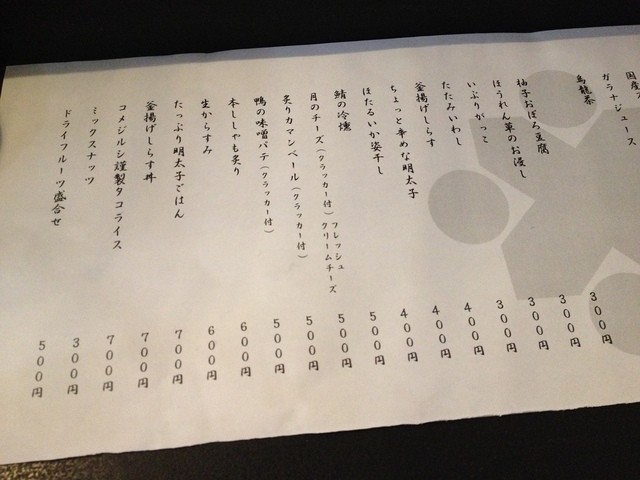 国産
ガラナジュース
烏龍茶
柚子おぼろ豆腐 300円
ほうれん草のお浸し 300円
いぶりがっこ 300円
たたみいわし 300円
釜揚げしらす 400円
ちょっと辛めな明太子 400円
ほたるいか姿干し 400円
鯖の冷燻 500円
月のチーズ(クラッカー付) フレッシュ クリームチーズ 500円
炙りカマンベール(クラッカー付) 500円
鴨の味噌パテ(クラッカー付) 500円
本ししゃも炙り 600円
生からすみ 600円
たっぷり明太子ごはん 700円
釜揚げしらす丼 700円
コメジルシ謹製タコライス 700円
ミックスナッツ 300円
ドライフルーツ盛合せ 500円